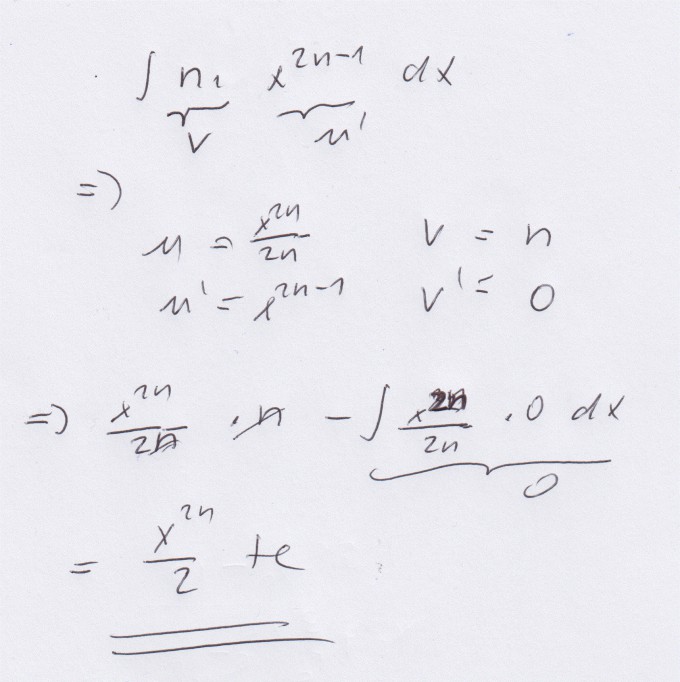 ∫ n₁ x^{2n-1} dx
v u'
=>
u = x^{2n}/2n v = n
u' = x^{2n-1} v' = 0
=> x^{2n}/2n · n - ∫ x^{2n}/2n · 0 dx
0
= x^{2n}/2 + c